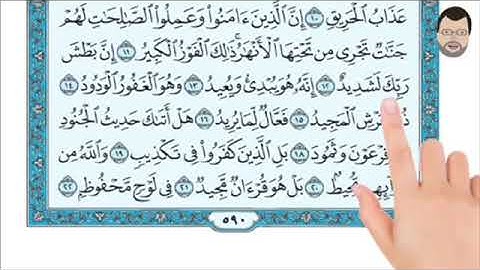 عَذَابُ ٱلْحَرِيقِ ١٠ إِنَّ ٱلَّذِينَ ءَامَنُوا۟ وَعَمِلُوا۟ ٱلصَّٰلِحَٰتِ لَهُمْ
جَنَّٰتٌ تَجْرِى مِن تَحْتِهَا ٱلْأَنْهَٰرُ ذَٰلِكَ ٱلْفَوْزُ ٱلْكَبِيرُ ١١ إِنَّ بَطْشَ
رَبِّكَ لَشَدِيدٌ ١٢ إِنَّهُۥ هُوَ يُبْدِئُ وَيُعِيدُ ١٣ وَهُوَ ٱلْغَفُورُ ٱلْوَدُودُ ١٤
ٱلْعَرْشِ ٱلْمَجِيدُ ١٥ فَعَّالٌ لِّمَا يُرِيدُ ١٦ هَلْ أَتَىٰكَ حَدِيثُ ٱلْجُنُودِ
فِرْعَوْنَ وَثَمُودَ ١٨ بَلِ ٱلَّذِينَ كَفَرُوا۟ فِى تَكْذِيبٍ ١٩ وَٱللَّهُ مِن
مُّحِيطٌۢ ٢٠ بَلْ هُوَ قُرْءَانٌ مَّجِيدٌ ٢١ فِى لَوْحٍ مَّحْفُوظٍۭ ٢٢
٥٩٠